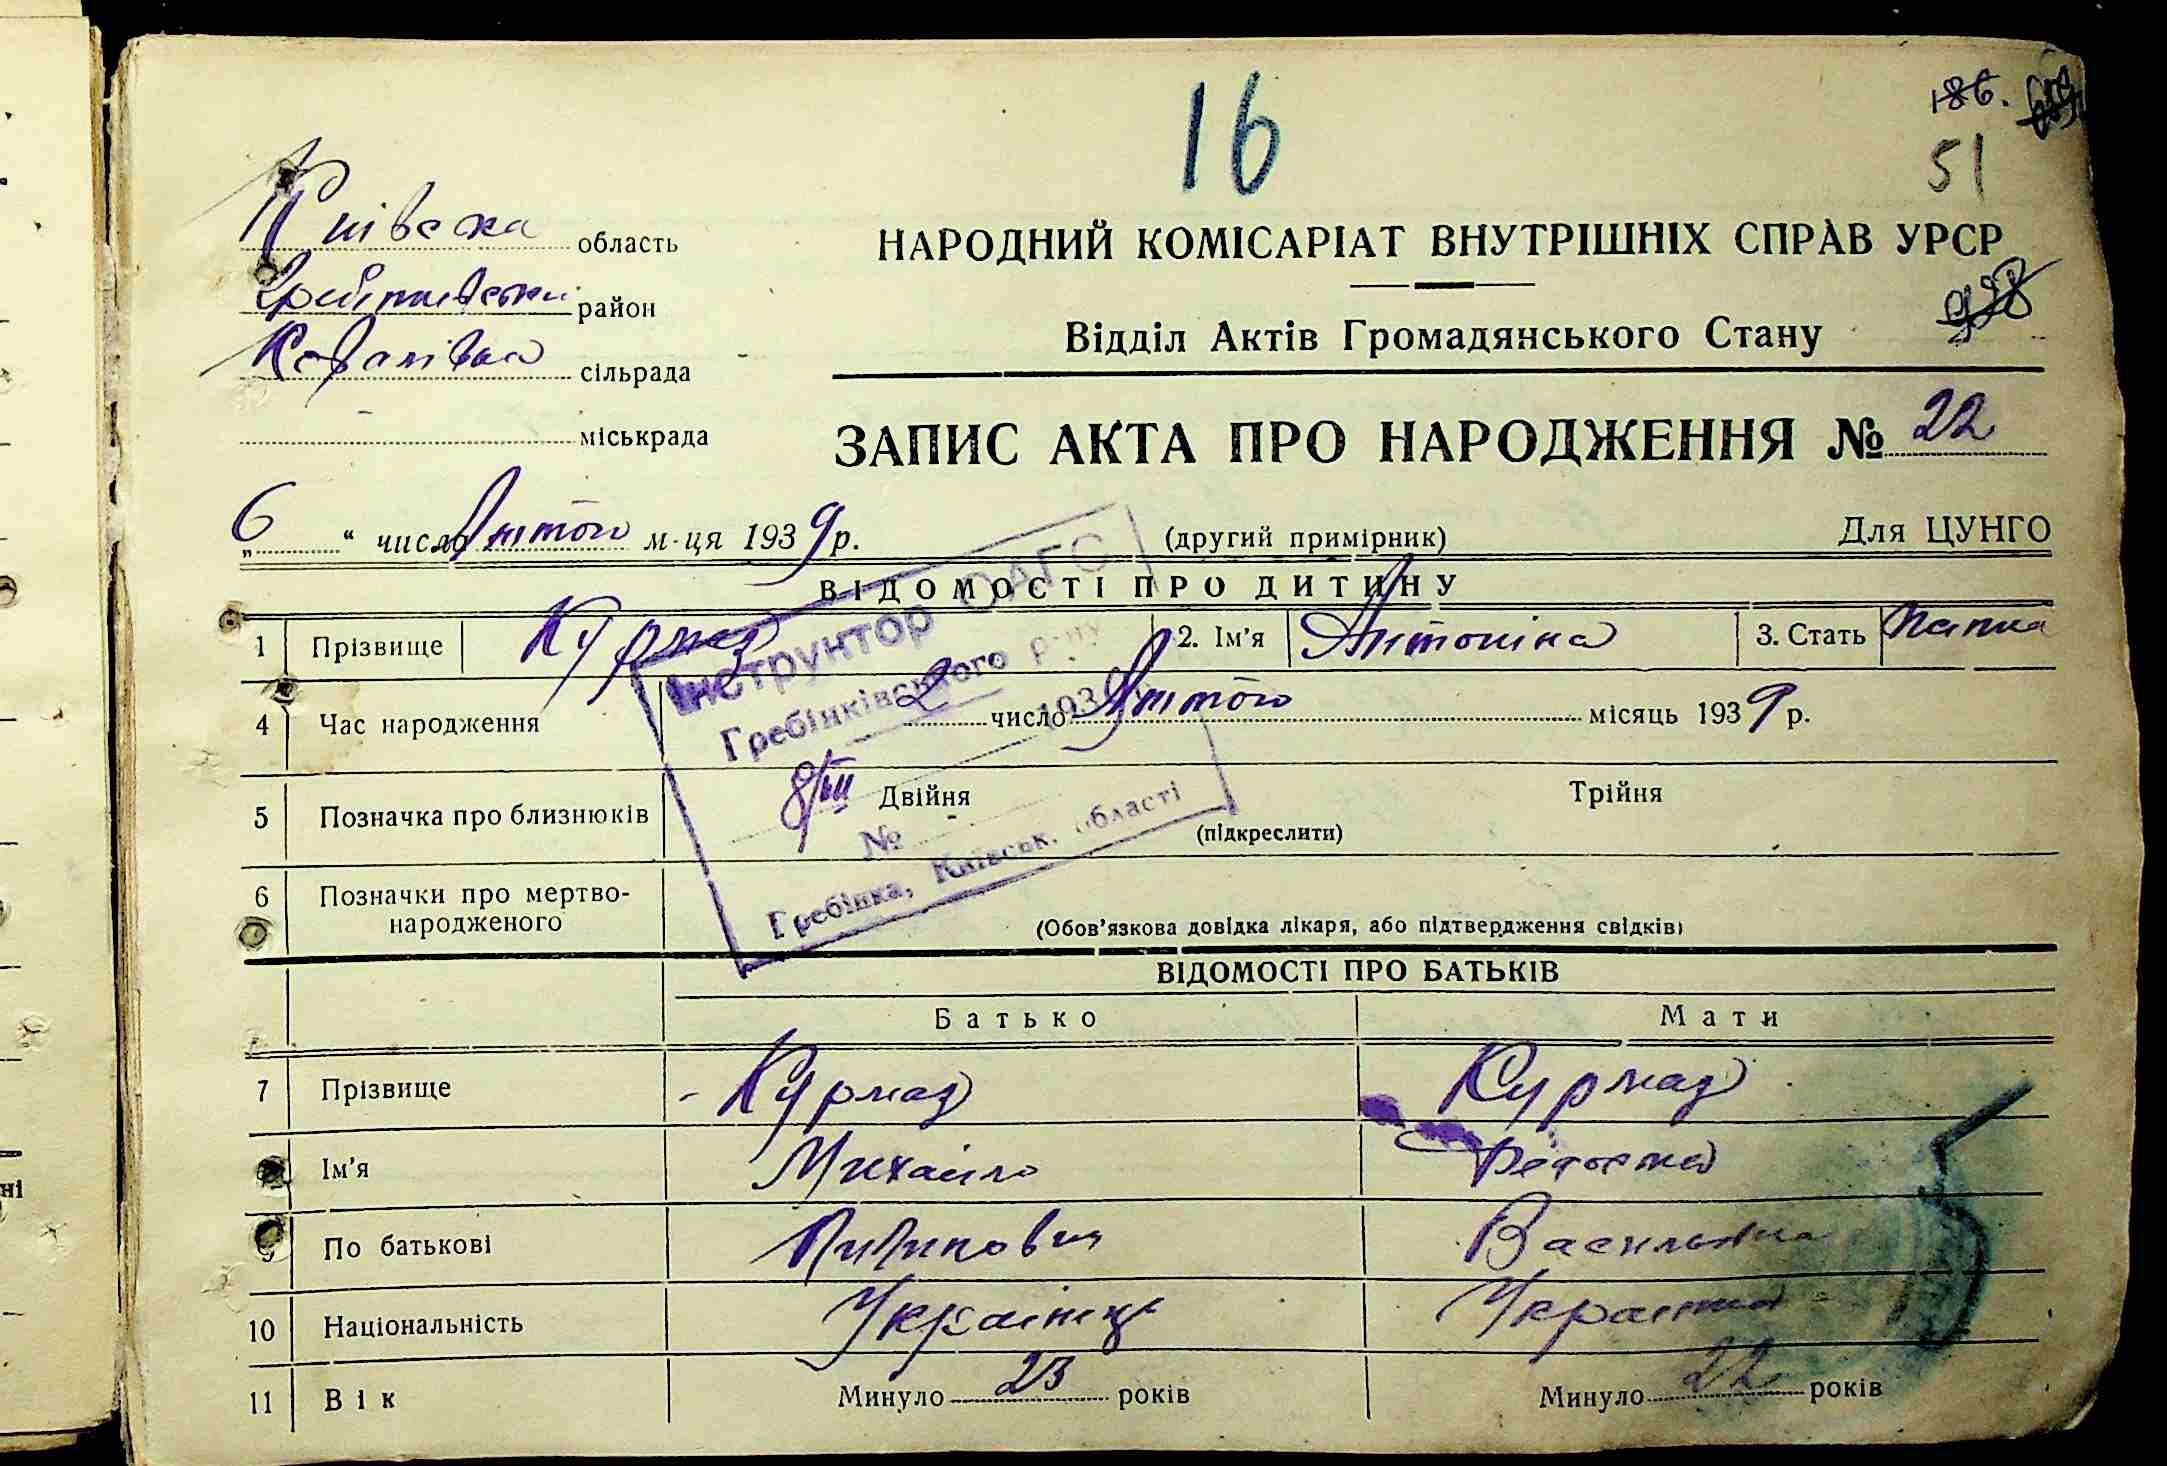 16
186.
51
Київска область
Гребінківський район
Ковалівка сільрада
міськрада
НАРОДНИЙ КОМІСАРІАТ ВНУТРІШНІХ СПРАВ УРСР
Відділ Актів Громадянського Стану
ЗАПИС АКТА ПРО НАРОДЖЕННЯ № 22
„6“ число Лютого м-ця 1939 р. (другий примірник) Для ЦУНГО
ВІДОМОСТІ ПРО ДИТИНУ
1 Прізвище Курмаз 2. Ім'я Антоніна 3. Стать
4 Час народження 2 число Лютого місяць 1939 р.
5 Позначка про близнюків Двійня Трійня
(підкреслити)
6 Позначки про мертво-
народженого
(Обов'язкова довідка лікаря, або підтвердження свідків)
Інструктор ОАГС
Гребінківського р-ну
8/III 193
№
Гребінка, Київськ. області
ВІДОМОСТІ ПРО БАТЬКІВ
Батько Мати
7 Прізвище Курмаз Курмаз
Ім'я Михайло
9 По батькові Пилипович Васильівна
10 Національність Українець Украінка
11 Вік Минуло 23 років Минуло 22 років
ні